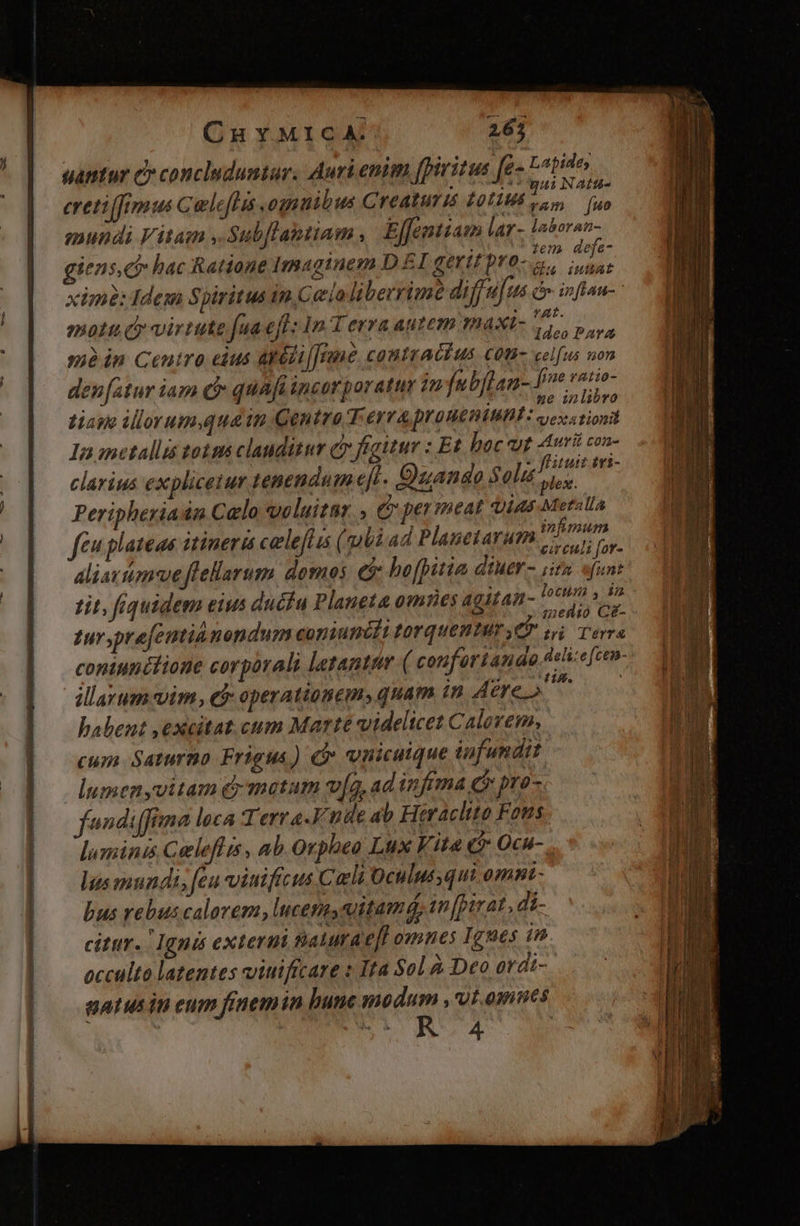 CHYMICA. 263
uantur & concluduntur. Auri enim ſpiritus ſe-
cretiſſimus Cæleſtis omnibus Creaturis totius
mundi Vitam, Subſtantiam, Eſſentiam lar-
giens, & hac Ratione Imaginem DEI gerit pro-
ximè: Idem Spiritus in Cœlo liberrimè diffuſus &
motu & virtute ſua eſt: In Terra autem maxi-
mè in Centro eius arctiſſimè contractus con-
denſatur iam & quaſi incorporatur in ſubſtan-
tiam illorum, quæ in Centro Terræ proueniunt:
In metallis totus clauditur & figitur: Et hoc vt
clarius explicetur tenendum eſt. Quando Solis
Peripheria in Cælo voluitur, & permeat vias
ſeu plateas itineris cæleſtis (vbi ad Planetarum
aliarúmve ſtellarum domos & hoſpitia diuer-
tit, ſiquidem eius ductu Planetæ omnes agitan-
tur, præſentiâ nondum coniuncti torquentur, &
coniunctione corporali lætantur (confortando
illarum vim, & operationem, quam in Aëre
habent, excitat cum Marte videlicet Calorem,
cum Saturno Frigus) & vnicuique infundit
lumen, vitam & motum vſq, ad infima & pro-
fundiſſima loca Terræ. Vnde ab Heraclito Fons
luminis Cæleſtis, ab Orpheo Lux Vitæ & Ocu-
lus mundi, ſeu viuificus Cæli Oculus, qui omni-
bus rebus calorem, lucem, vitam q; inſpirat, di-
citur. Ignis externi natura eſt omnes Ignes in
occulto latentes viuificare: Ita Sol à Deo ordi-
natus in eum finem in hunc modum, vt omnes
R 4
Lapide,
qui Natu-
ram ſuo
laboran-
tem defe-
ctu iuuat
inſtau-
rat.
Ideo Para
celſus non
ſine ratio-
ne in libro
vexationū
Aurū con-
ſtituit tri-
plex.
Metalla
infimum
circuli ſor-
tita ſunt
locum, in
medio Cē-
tri Terræ
deliteſcen-
tia.